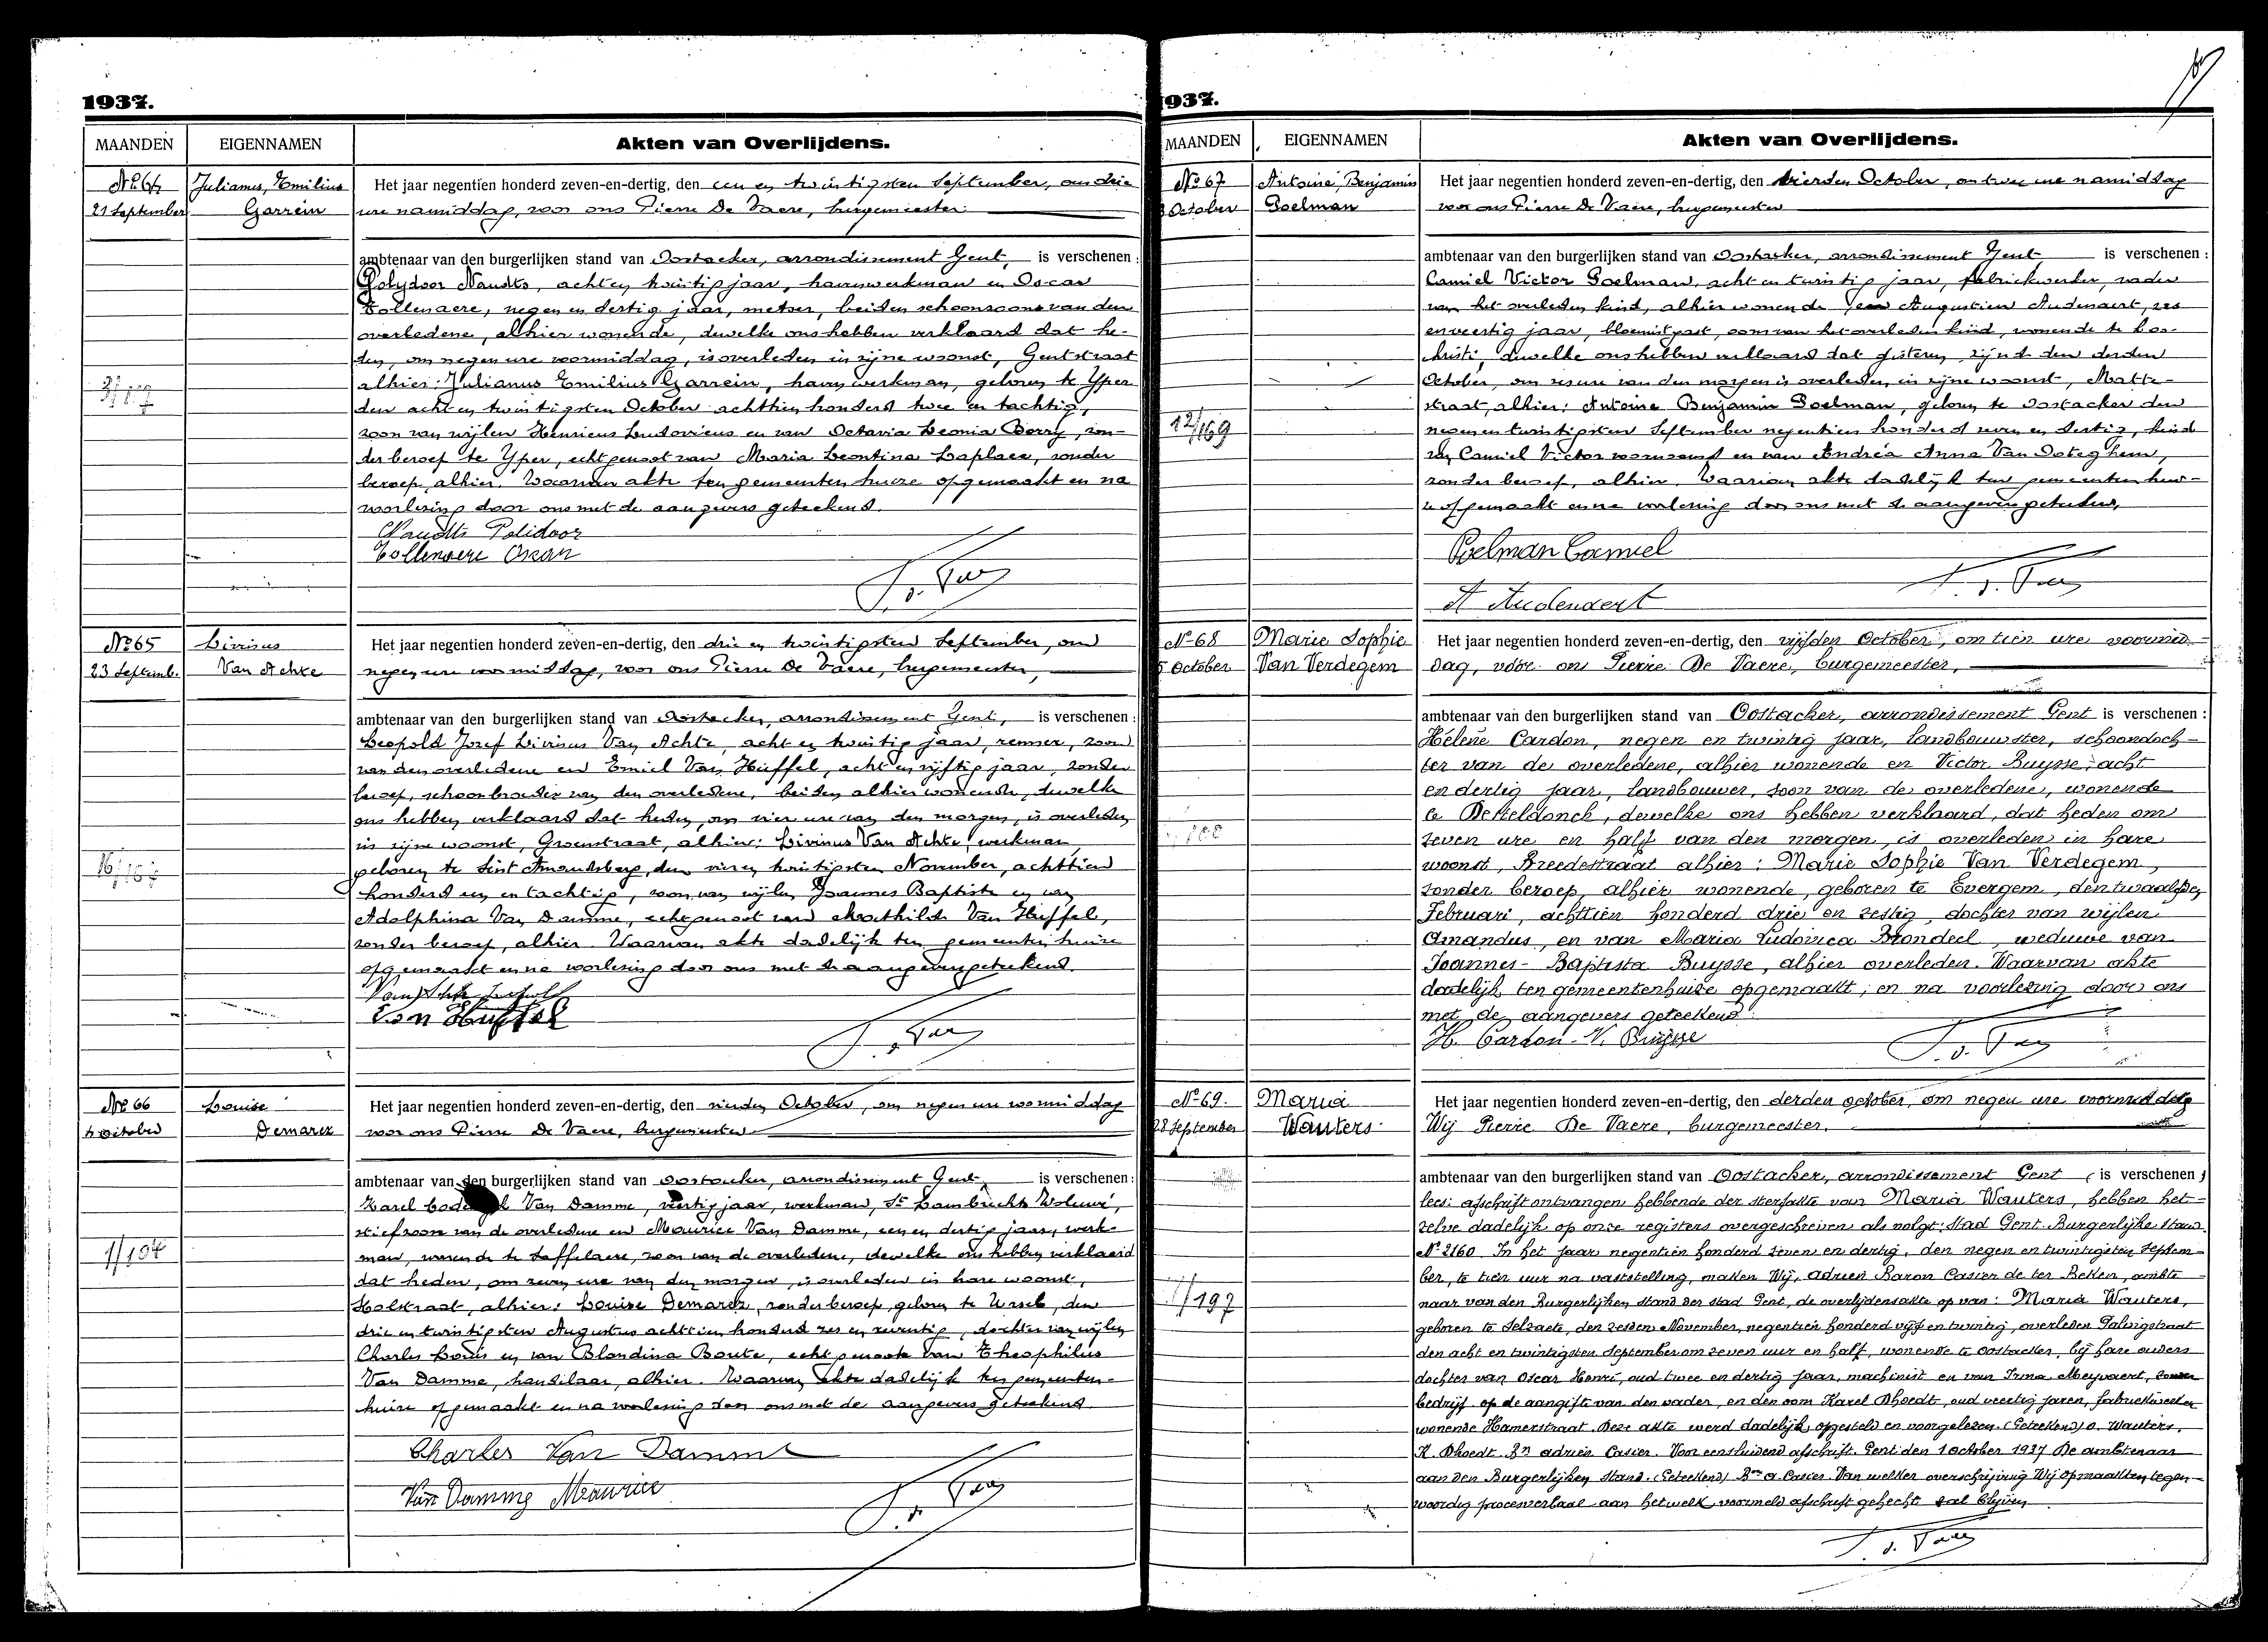 1937.
MAANDEN
EIGENNAMEN
Akten van Overlijdens.
No 64
21 September
Julianus, Emilius
Garrein
Het jaar negentien honderd zeven-en-dertig, den een en twintigsten September, om drie
ure namiddag, voor ons Pierre De Vaere, burgemeester
ambtenaar van den burgerlijken stand van Oostacker, arrondissement Gent, is verschenen :
Polydoor Naudts, acht en twintig jaar, havenwerkman en Oscar
Tollenaere, negen en dertig jaar, metser, beiden schoonzoons van den
overledene, alhier wonende, dewelke ons hebben verklaard dat he-
den, om negen ure voormiddag, is overleden in zijne woonst, Gentstraat
alhier: Julianus Emilius Garrein, havenwerkman, geboren te Yper
den acht en twintigsten October achttien honderd twee en tachtig,
zoon van wijlen Henricus Ludovicus en van Octavia Leonia Berry, zon-
der beroep te Yper, echtgenoot van Maria Leontina Laplace, zonder
beroep, alhier. Waarvan akte ten gemeentenhuize opgemaakt en na
voorlezing door ons met de aangevers geteekend.
Naudts Polidoor
Tollenaere Oscar
No 65
23 Septemb.
Livinus
Van Achte
Het jaar negentien honderd zeven-en-dertig, den drie en twintigsten September, om
negen ure voormiddag, voor ons Pierre De Vaere, burgemeester,
ambtenaar van den burgerlijken stand van Oostacker, arrondissement Gent, is verschenen :
Leopold Jozef Livinus Van Achte, acht en twintig jaar, renner, zoon
van den overledene en Emiel Van Hüffel, acht en vijftig jaar, zonder
beroep, schoonbroeder van den overledene, beiden alhier wonende, dewelke
ons hebben verklaard dat heden, om vier ure van den morgen, is overleden
in zijne woonst, Groenstraat, alhier: Livinus Van Achte, werkman,
geboren te Sint Amandsberg, den vier en twintigsten November, achttien
honderd een en tachtig, zoon van wijlen Joannes Baptiste en van
Adolphina Van Damme, echtgenoot van Mathilde Van Hüffel,
zonder beroep, alhier. Waarvan akte dadelijk ten gemeentenhuize
opgemaakt en na voorlezing door ons met de aangevers geteekend.
Van Achte Leopold
Van Huffel
No 66
4 October
Louise
Demarez
Het jaar negentien honderd zeven-en-dertig, den vierden October, om negen ure voormiddag
voor ons Pierre De Vaere, burgemeester
ambtenaar van den burgerlijken stand van Oostacker, arrondissement Gent, is verschenen :
Karel Van Damme, veertig jaar, werkman, St Lambrechts Woluwé,
stiefzoon van de overledene en Maurice Van Damme, een en dertig jaar, werk-
man, wonende te Saffelaere, zoon van de overledene, dewelke ons hebben verklaard
dat heden, om zeven ure van den morgen, is overleden in hare woonst,
Holstraat, alhier: Louise Demarez, zonder beroep, geboren te Ursel, den
drie en twintigsten Augustus achttien honderd zes en zeventig, dochter van wijlen
Charles Louis en van Blondina Boute, echtgenoote van Theophilus
Van Damme, handelaar, alhier. Waarvan akte dadelijk ten gemeenten-
huize opgemaakt en na voorlezing door ons met de aangevers geteekend
Charles Van Damme
Van Damme Maurice
1/194
1937.
MAANDEN
EIGENNAMEN
Akten van Overlijdens.
No 67
3 October
Antoine, Benjamin
Poelman
Het jaar negentien honderd zeven-en-dertig, den vierden October, om twee ure namiddag
voor ons Pierre De Vaere, burgemeester
ambtenaar van den burgerlijken stand van Oostacker, arrondissement Gent, is verschenen :
Camiel Victor Poelman, acht en twintig jaar, fabriekwerker, vader
van het overleden kind, alhier wonende Augustien Audenaert, zes
en veertig jaar, bloemist gast, oom van het overleden kind, wonende te Loo-
christi, dewelke ons hebben verklaard dat gisteren, zijnde den derden
October, om zes ure van den morgen is overleden, in zijne woonst,
straat, alhier: Antoine Benjamin Poelman, geboren te Oostacker den
negen en twintigsten September negentien honderd zeven en dertig, kind
van Camiel Victor voornoemd en van Andréa Anna Van Doteghem,
zonder beroep, alhier. Waarvan akte dadelijk ten gemeentenhui-
ze opgemaakt en na voorlezing door ons met de aangevers geteekend.
Poelman Camiel
A Audenaert
12/169
No 68
5 October
Marie Sophie
Van Verdegem
Het jaar negentien honderd zeven-en-dertig, den vijfden October, om tien ure voormid-
dag, vóór ons Pierre De Vaere, burgemeester,
ambtenaar van den burgerlijken stand van Oostacker, arrondissement Gent is verschenen :
Hélène Cardon, negen en twintig jaar, landbouwster, schoondoch-
ter van de overledene, alhier wonende en Victor Buysse, acht
en dertig jaar, landbouwer, zoon van de overledene, wonende
te Desteldonck, dewelke ons hebben verklaard, dat heden om
zeven ure en half van den morgen, is overleden in hare
woonst, Breedestraat alhier: Marie Sophie Van Verdegem,
zonder beroep, alhier wonende, geboren te Evergem, den twaalfden
Februari, achttien honderd drie en zestig, dochter van wijlen
Amandus, en van Maria Ludovica Brondeel, weduwe van
Joannes-Baptista Buysse, alhier overleden. Waarvan akte
dadelijk ten gemeentenhuize opgemaakt, en na voorlezing door ons
met de aangevers geteekend.
H. Cardon V. Buysse
No 69.
28 September
Maria
Wauters
Het jaar negentien honderd zeven-en-dertig, den derden october, om negen ure voormiddag
Wij Pierre De Vaere, burgemeester,
ambtenaar van den burgerlijken stand van Oostacker, arrondissement Gent ( is verschenen )
lees: afschrift ontvangen hebbende der sterfakte van Maria Wauters, hebben het-
zelve dadelijk op onze registers overgeschreven als volgt: Stad Gent. Burgerlijke Stand.
No 2160 In het jaar negentien honderd zeven en dertig, den negen en twintigsten Septem-
ber, te tien uur na vaststelling, maken Wij, Adrien Baron Casier de ter Beken, ambte-
naar van den Burgerlijken stand der stad Gent, de overlijdensakte op van: Maria Wauters,
geboren te Selzaete, den zesden November, negentien honderd vijf en twintig, overleden
den acht en twintigsten September om zeven uur en half, wonende te Oostacker, bij hare ouders
dochter van Oscar Henri, oud twee en dertig jaar, machinist en van Irma Meyvaert, zonder
bedrijf. op de aangifte van den vader, en den oom Karel Dhoedt, oud veertig jaren, fabriekwerker
wonende Hamerstraat. Deze akte werd dadelijk opgesteld en voorgelezen. (Geteekend) O. Wauters.
K. Dhoedt. Bn Adrien Casier. Voor eensluidend afschrift. Gent den 1 October 1937 De ambtenaar
aan den Burgerlijken Stand. (Geteekend) Bon A. Casier. Van welker overschrijving Wij opmaakten tegen-
woordig procesverbaal aan hetwelk voormeld afschrift gehecht zal blijven
1/197